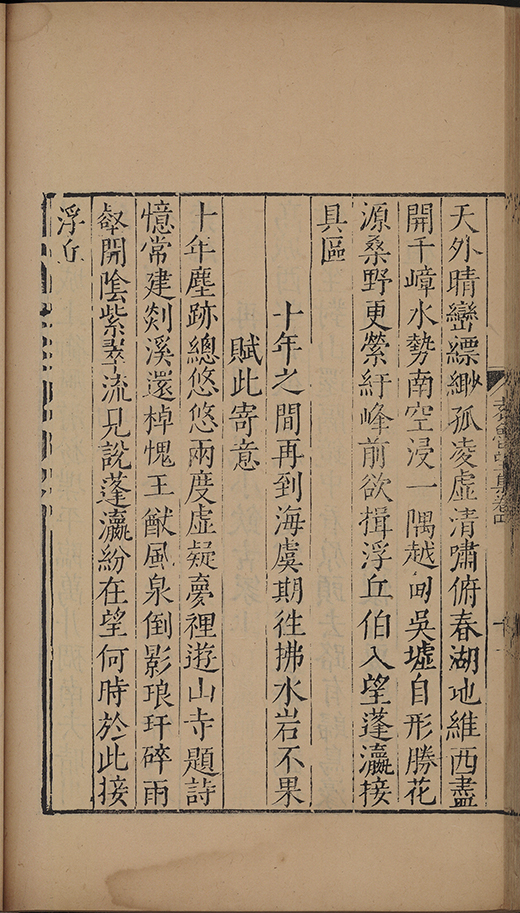 袁魯望集卷四
天外晴巒縹緲孤凌虛清嘯俯春湖地維西盡
開千嶂水勢南空浸一隅越甸吳墟自形勝花
源桑野更縈紆峰前欲揖浮丘伯入望蓬瀛接
具區
十年之間再到海虞期徃拂水岩不果
賦此寄意
十年塵跡總悠悠兩度虛疑夢裡遊山寺題詩
憶常建剡溪還棹愧王猷風泉倒影琅玕碎雨
壑開陰紫翠流兄說蓬瀛紛在望何時於此接
浮丘